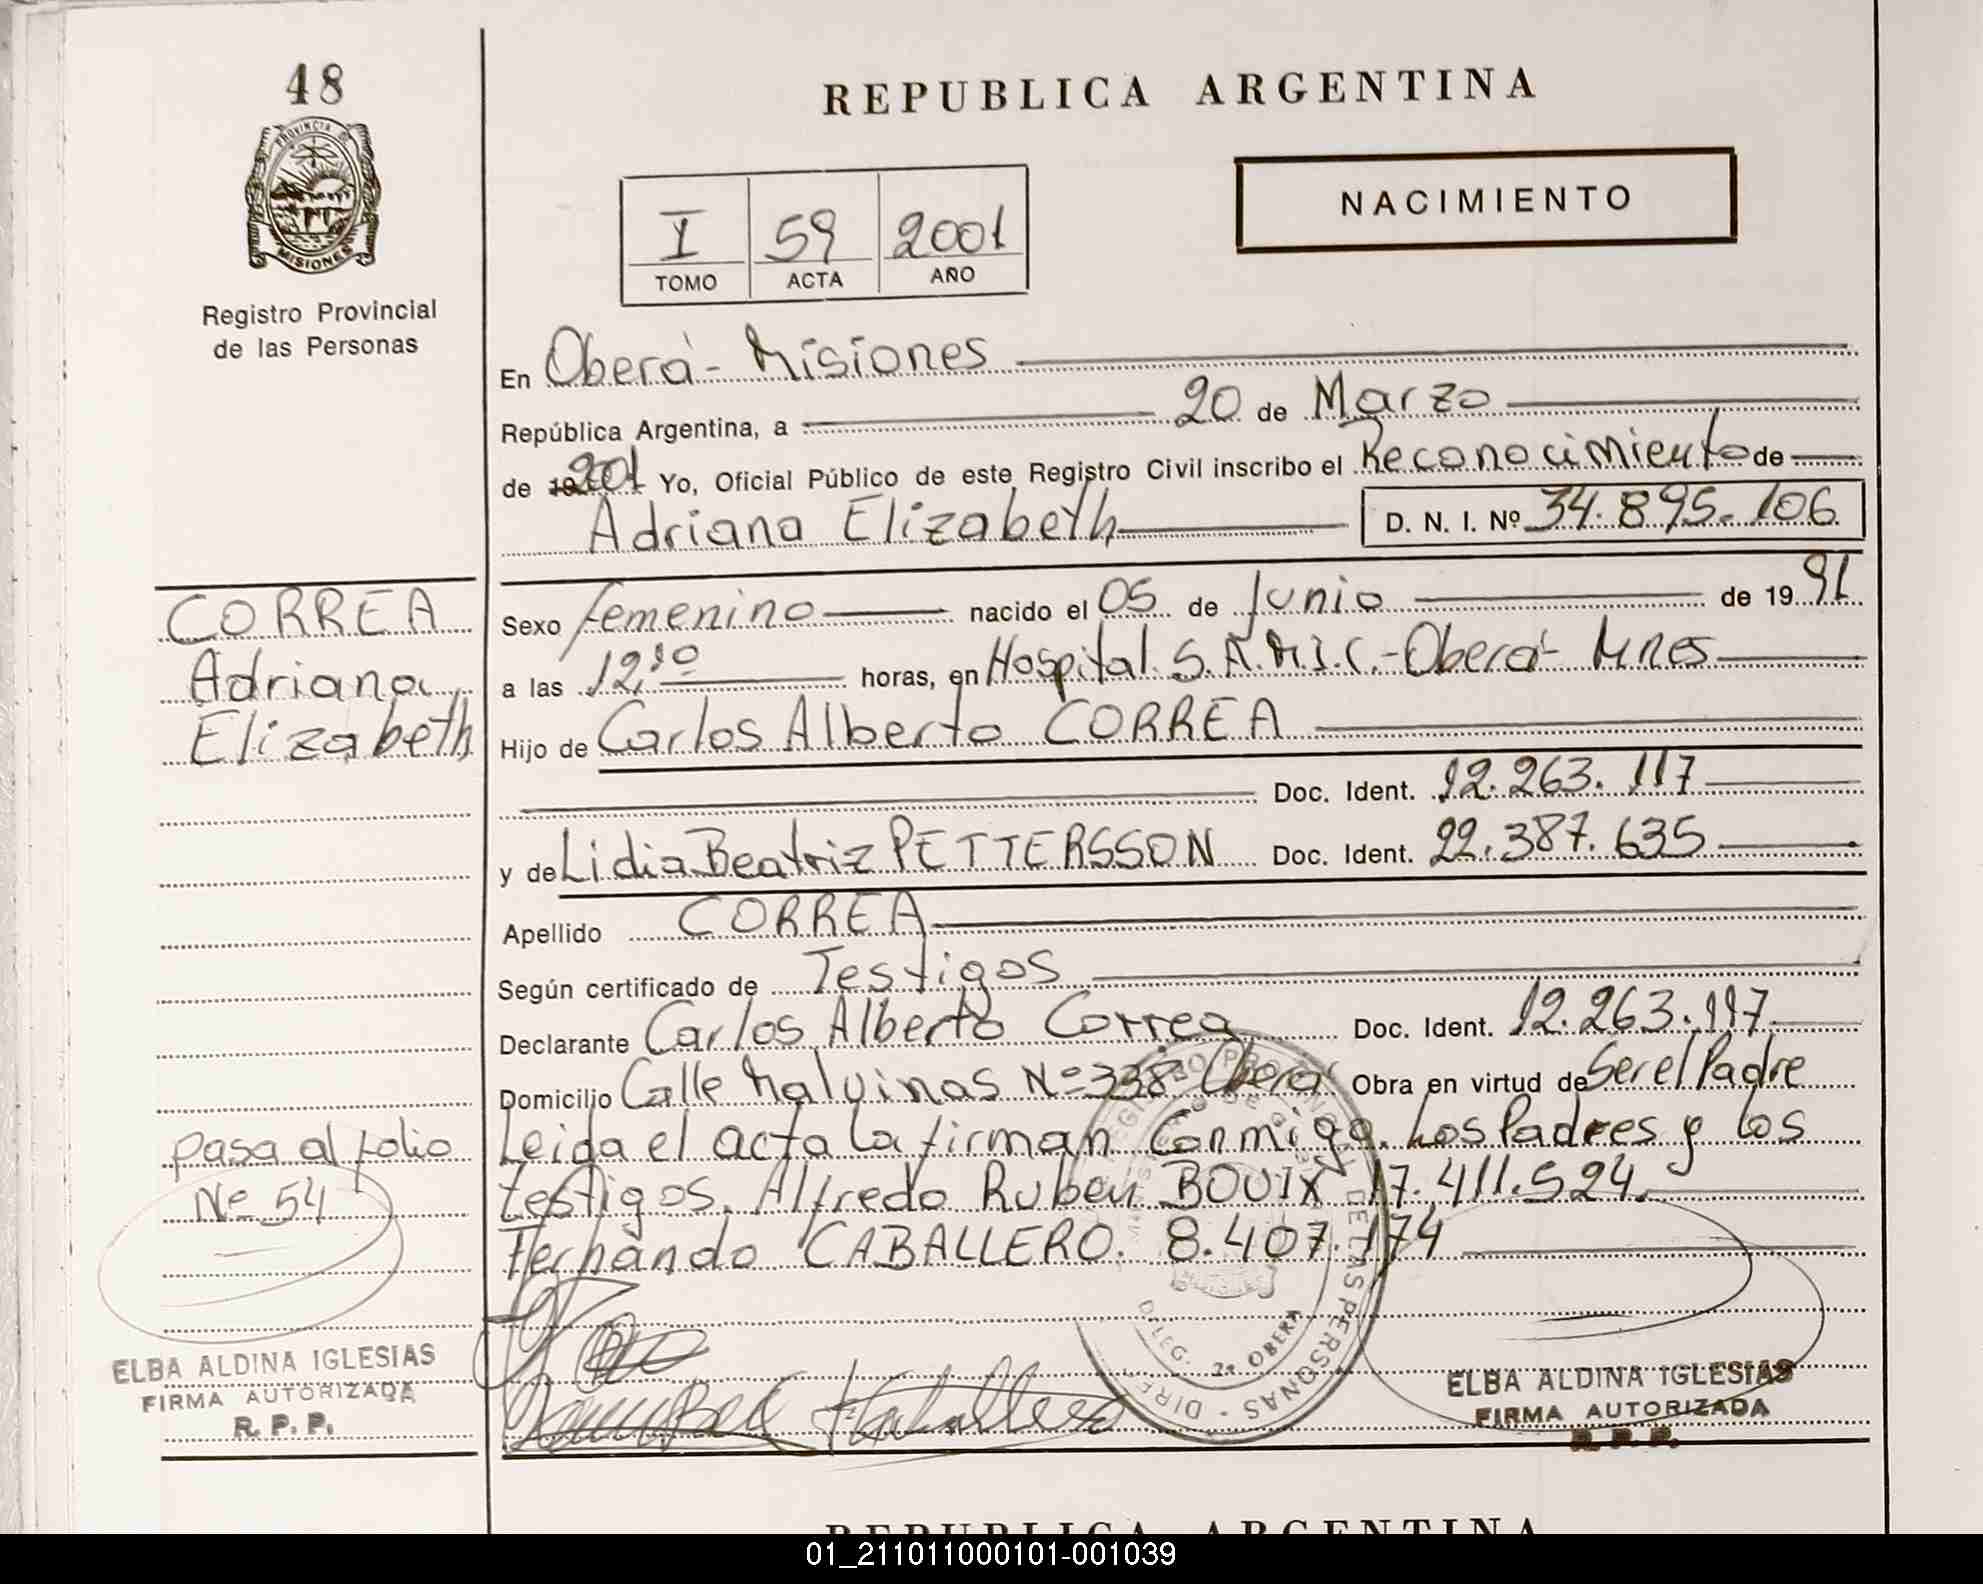 48
PROVINCIA DE
MISIONES
Registro Provincial
de las Personas
REPUBLICA ARGENTINA
NACIMIENTO
I 59 2001
TOMO ACTA AÑO
En Oberá - Misiones
República Argentina, a 20 de Marzo
de 2001 Yo, Oficial Público de este Registro Civil inscribo el Reconocimiento de
Adriana Elizabeth D. N. I. Nº 34.895.106
CORREA
Adriana
Elizabeth
Sexo femenino nacido el 05 de Junio de 1991
a las 12,10 horas, en Hospital S.A.M.I.C.-Oberá- Mnes
Hijo de Carlos Alberto CORREA
Doc. Ident. 12.263.117
y de Lidia Beatriz PETTERSSON Doc. Ident. 22.387.635
Apellido CORREA
Según certificado de Testigos
Declarante Carlos Alberto Correa Doc. Ident. 12.263.117
Domicilio Calle Malvinas Nº 338 Oberá Obra en virtud de Ser el Padre
Leida el acta la firman Conmigo. Los Padres y los
testigos. Alfredo Ruben BOUIX 17.411.524.
Hernando CABALLERO. 8.407.174
pasa al folio
Nº 54
ELBA ALDINA IGLESIAS
FIRMA AUTORIZADA
R. P. P.
DELEG. 2a OBERA
ELBA ALDINA IGLESIAS
FIRMA AUTORIZADA
R. P. P.
REPUBLICA ARGENTINA
01_211011000101-001039